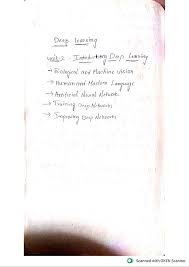 Deep Learning
Unit-2 - Introducing Deep Learning
→ Biological and Machine Vision
→ Human and Machine Language
→ Artificial Neural Network
→ Training Deep Networks
→ Improving Deep Networks
Scanned with OKEN Scanner